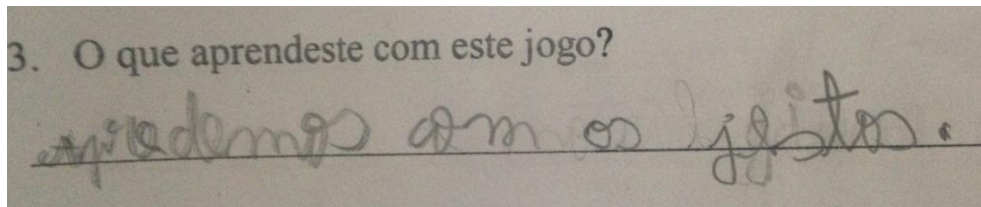 3. O que aprendeste com este jogo?
apredemos com os jestos.